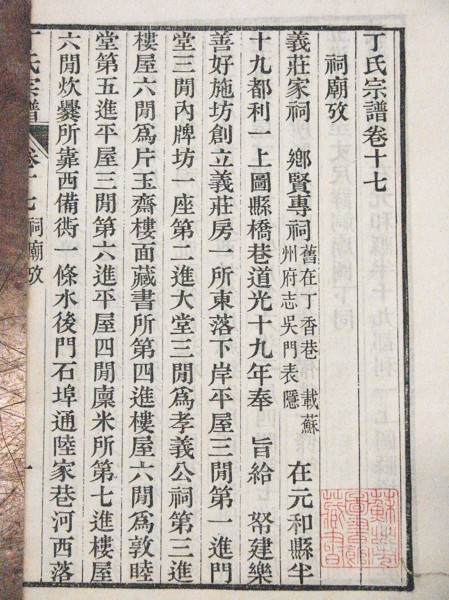 丁氏宗譜卷十七
祠廟攷
義莊家祠　鄉賢專祠 舊在丁香巷　載蘇 州府志吳門表隱 在元和縣半
十九都利一上圖縣橋巷道光十九年奉　旨給　帑建樂
善好施坊創立義莊房一所東落下岸平屋三閒第一進門
堂三閒內牌坊一座第二進大堂三閒爲孝義公祠第三進
樓屋六閒爲片玉齋樓面藏書所第四進樓屋六閒爲敦睦
堂第五進平屋三閒第六進平屋四閒廩米所第七進樓屋
六閒炊爨所靠西備衖一條水後門石埠通陸家巷河西落
丁氏宗譜　卷十七　祠廟攷　一
蘇州市
圖書館
藏書